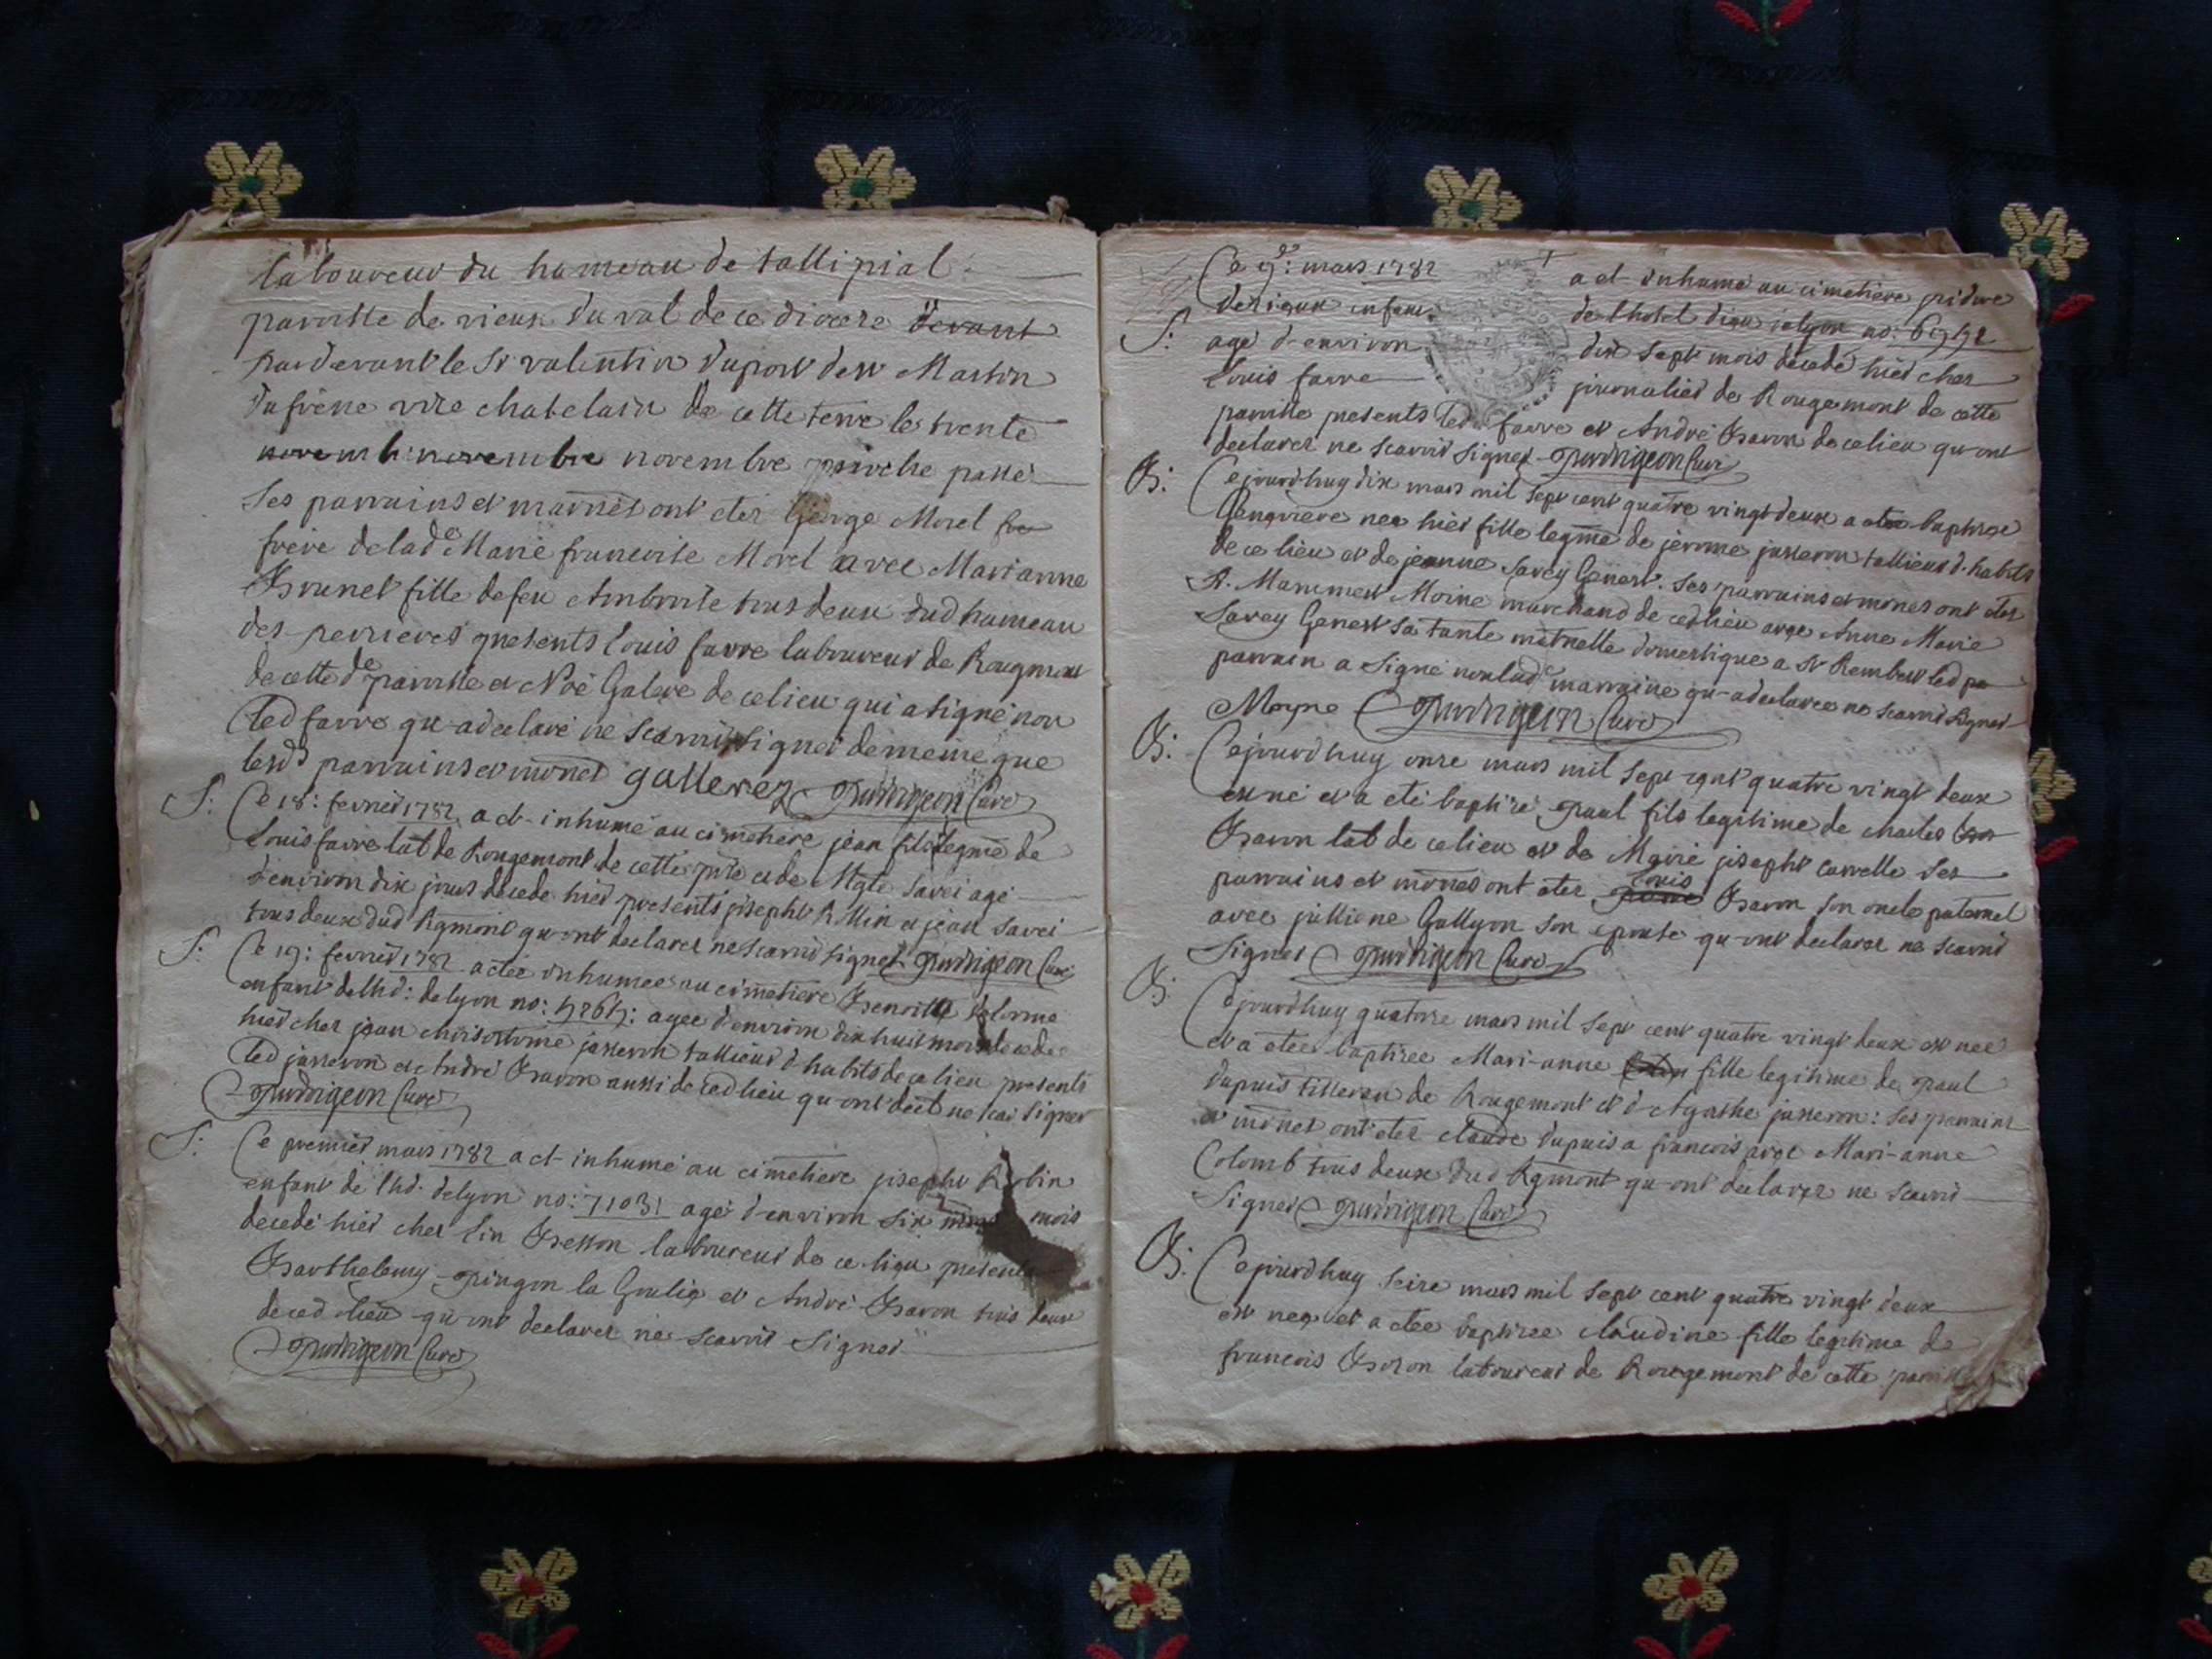 laboureur du hameau de tallipial
paroisse de vieux du val de ce diocese devant
pardevant le Sr valentin duport de St Martin
du frene vice chatelain de cette terre le trente
novembre novembre proche passé
Ses parrains et marnes ont etes George Morel fre
frere de lade Marie francoise Morel avec Marianne
Brunet fille de feu Ambroise tous deux dud hameau
des perrieres presents louis favre laboureur de Rougmont
de cette de paroisse et Noé Galere de ce lieu qui a signé non
led favre qu-a declaré ne scavoir signer de meme que
lesds parrains et mornes gallerez Curé
S: Ce 18: fevrier 1782 a et inhumé au cimetiere jean fils legme de
Louis favre lab de Rougemont de cette psse et de Mgte Savei agé
d'environ dix jours decedé hier presents joseph et jean Savei
tous deux dud Rgmont qu-ont declarer ne scavoir signer Curé
S: Ce 19: fevrier 1782 a etée inhumee au cimetiere Benoitte delorme
enfant de lhd: de lyon no: agee d'environ dix huit mois decedee
hier cher jean chrisostome jasseron tallieur d habits de ce lieu presents
led jasseron et André Baron aussi de ced lieu qu-ont decl ne scai signer
Curé
S: Ce premier mars 1782 a et inhumé au cimetiere joseph
enfant de lhd. de lyon no: 71031 agé d'environ six mois
decedé hier cher lin Besson laboureur de ce lieu presents
Barthelemy pingon la Goulie et André Baron tous deux
de ced lieu qu-ont declarer ne scavoir signer
Curé
Ce 9e: mars 1782 a et inhumé au cimetiere
enfant de lhotel dieu de lyon no:
S: agé d-environ dix sept mois decedé hier cher
Louis favre journalier de Rougemont de cette
paroisse presents led favre et André Baron de ce lieu qu-ont
declarer ne scavoir signer Curé
B: Cejourdhuy dix mars mil sept cent quatre vingt deux a etee baptisee
Genevieve nee hier fille legme de jerome jasseron tallieur d-habits
de ce lieu et de jeanne Savey Genest. Ses parrains et mornes ont etes
Sr. Mammert Moine marchand de ced lieu avec Anne Marie
Savey Genest sa tante maternelle domestique a St Rembert led pa
parrain a signé non lade marraine qu-a declarée ne scavoir signer
Moyne Curé
B: Cejourdhuy onze mars mil sept cent quatre vingt deux
est né et a eté baptisé paul fils legitime de charles
Baron lab de ce lieu et de Marie joseph carrelle ses
parrains et mornes ont etes louis Baron son oncle paternel
avec jullione Gallyon son epouse qu-ont declarer ne scavoir
signer Curé
B: Cejourdhuy quatorze mars mil sept cent quatre vingt deux est nee
et a etee baptisee Mari-anne fille legitime de paul
dupuis tisseran de Rougemont et d-Agathe jasseron: ses parrains
et mornes ont etes claude dupuis a francois avec Mari-anne
Colomb tous deux dud Rgmont qu-ont declarer ne scavoir
signer Curé
B: Cejourdhuy seize mars mil sept cent quatre vingt deux
est nee et a etee baptisee claudine fille legitime de
francois Boron laboureur de Rougemont de cette paroisse